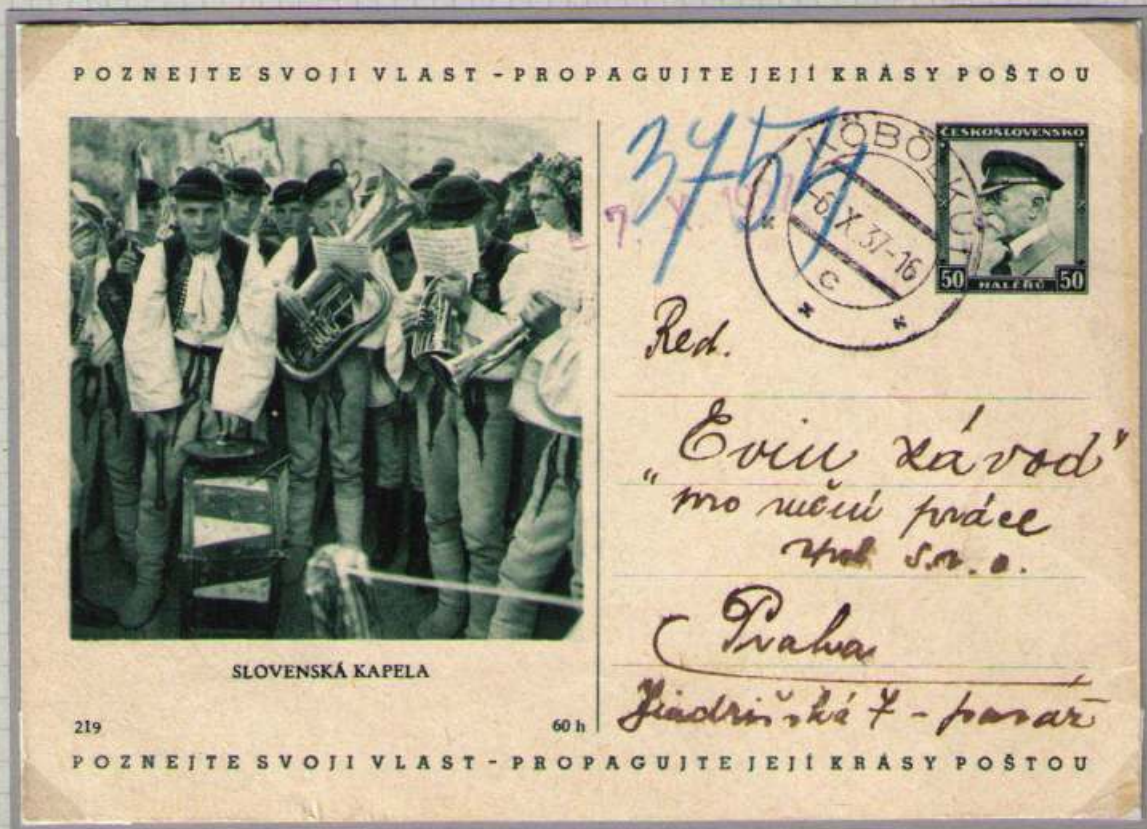 POZNEJTE SVOJI VLAST - PROPAGUJTE JEJÍ KRÁSY POŠTOU
KÖBÖLKÚT
-6.X.37-16
C
ČESKOSLOVENSKO
50 HALÉŘŮ 50
Red.
"Evin závod"
pro ruční práce
spol s.r.o.
Praha
Jindřišská 7 - pasáž
SLOVENSKÁ KAPELA
219
60 h
POZNEJTE SVOJI VLAST - PROPAGUJTE JEJÍ KRÁSY POŠTOU